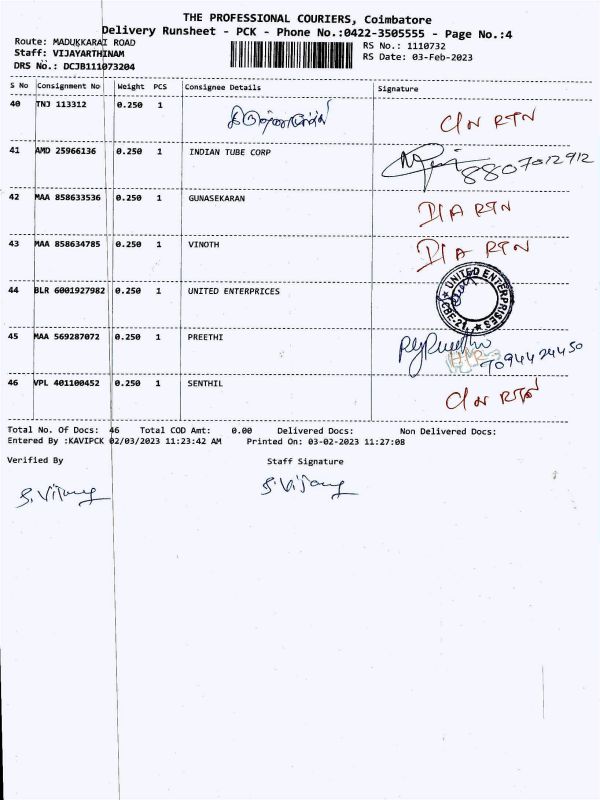 THE PROFESSIONAL COURIERS, Coimbatore
Delivery Runsheet - PCK - Phone No.:0422-3505555 - Page No.:4
Route: MADUKKARAI ROAD
RS No.: 1110732
Staff: VIJAYARTHINAM
RS Date: 03-Feb-2023
DRS No.: DCJB111073204
S No Consignment No Weight PCS Consignee Details Signature
40 TNJ 113312 0.250 1 C/N RTN
41 AMD 25966136 0.250 1 INDIAN TUBE CORP 8807012912
42 MAA 858633536 0.250 1 GUNASEKARAN D/A RTN
43 MAA 858634785 0.250 1 VINOTH D/A RTN
44 BLR 6001927982 0.250 1 UNITED ENTERPRICES ★ UNITED ENTERPRISES ★ CBE-21.
45 MAA 569287072 0.250 1 PREETHI 7094424450
46 VPL 401100452 0.250 1 SENTHIL C/N RTN
Total No. Of Docs: 46 Total COD Amt: 0.00 Delivered Docs: Non Delivered Docs:
Entered By :KAVIPCK 02/03/2023 11:23:42 AM Printed On: 03-02-2023 11:27:08
Verified By Staff Signature